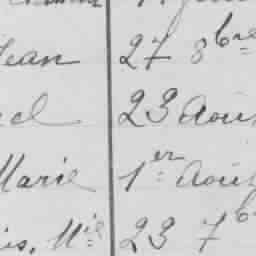 Jean 27 8bre
el 23 Aoû
Marie 1er Aoû
is, Mie 23 7b